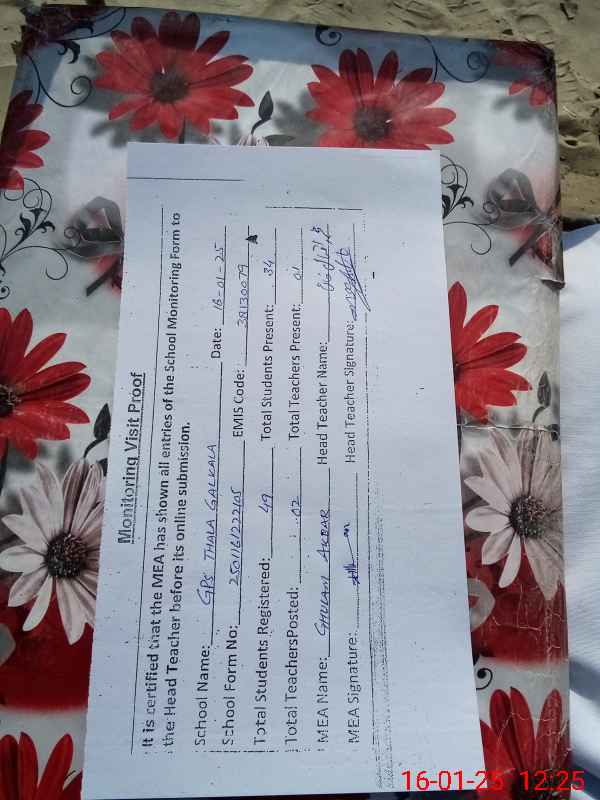 Monitoring Visit Proof
It is certified that the MEA has shown all entries of the School Monitoring Form to
the Head Teacher before its online submission.
School Name: GPS THALA GALKALA Date: 16-01-25
School Form No: 2501161222405 EMIS Code: 39130079
Total Students Registered: 49 Total Students Present: 34
Total Teachers Posted: 02 Total Teachers Present: 01
MEA Name: GHULAM AKBAR Head Teacher Name:
MEA Signature: Head Teacher Signature:
16-01-25 12:25